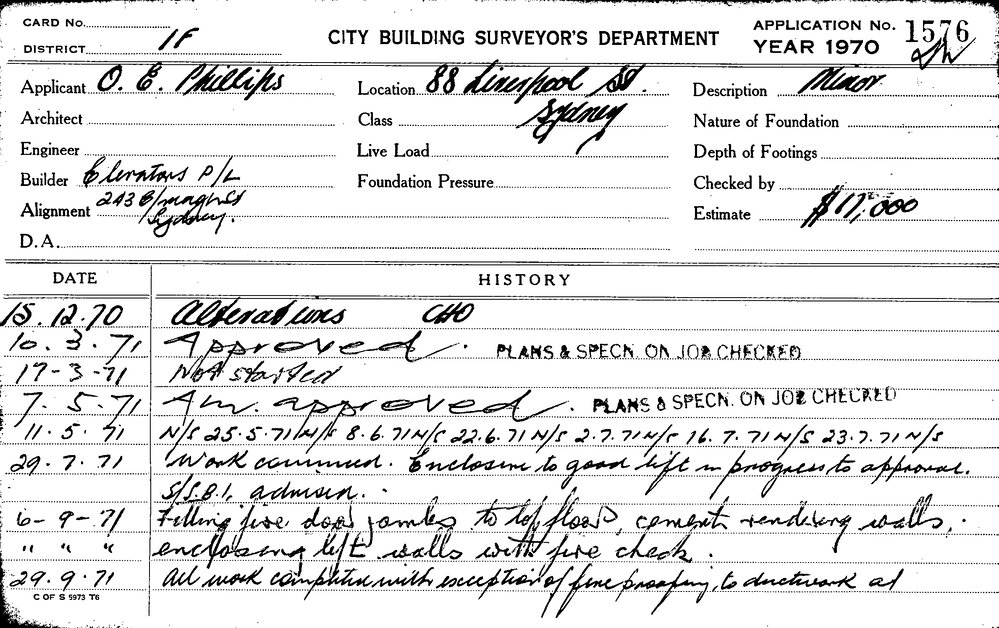 CARD No.
DISTRICT 1F
CITY BUILDING SURVEYOR'S DEPARTMENT
APPLICATION No. 1576
YEAR 1970
Applicant O. E. Phillips
Location 88 Liverpool St.
Sydney
Description Minor
Architect
Class
Nature of Foundation
Engineer
Live Load
Depth of Footings
Builder Elevators P/L
Foundation Pressure
Checked by
243 St
Alignment Sydney.
Estimate $17,000
D.A.
DATE HISTORY
15.12.70 Alterations CHO
10.3.71 Approved. PLANS & SPECN. ON JOB CHECKED
17-3-71 Not started
7.5.71 Am. approved. PLANS & SPECN. ON JOB CHECKED
11.5.71 N/S 25.5.71 N/S 8.6.71 N/S 22.6.71 N/S 2.7.71 N/S 16.7.71 N/S 23.7.71 N/S
29.7.71 Work commenced. Enclosure to good lift in progress to approval.
S/S.B.I. advised.
6-9-71 Filling fire door jambs to top floor, cement rendering walls,
" " " enclosing lift walls with fire check.
29.9.71 All work completed with exception of fire proofing, to ductwork at
C OF S 5973 T6